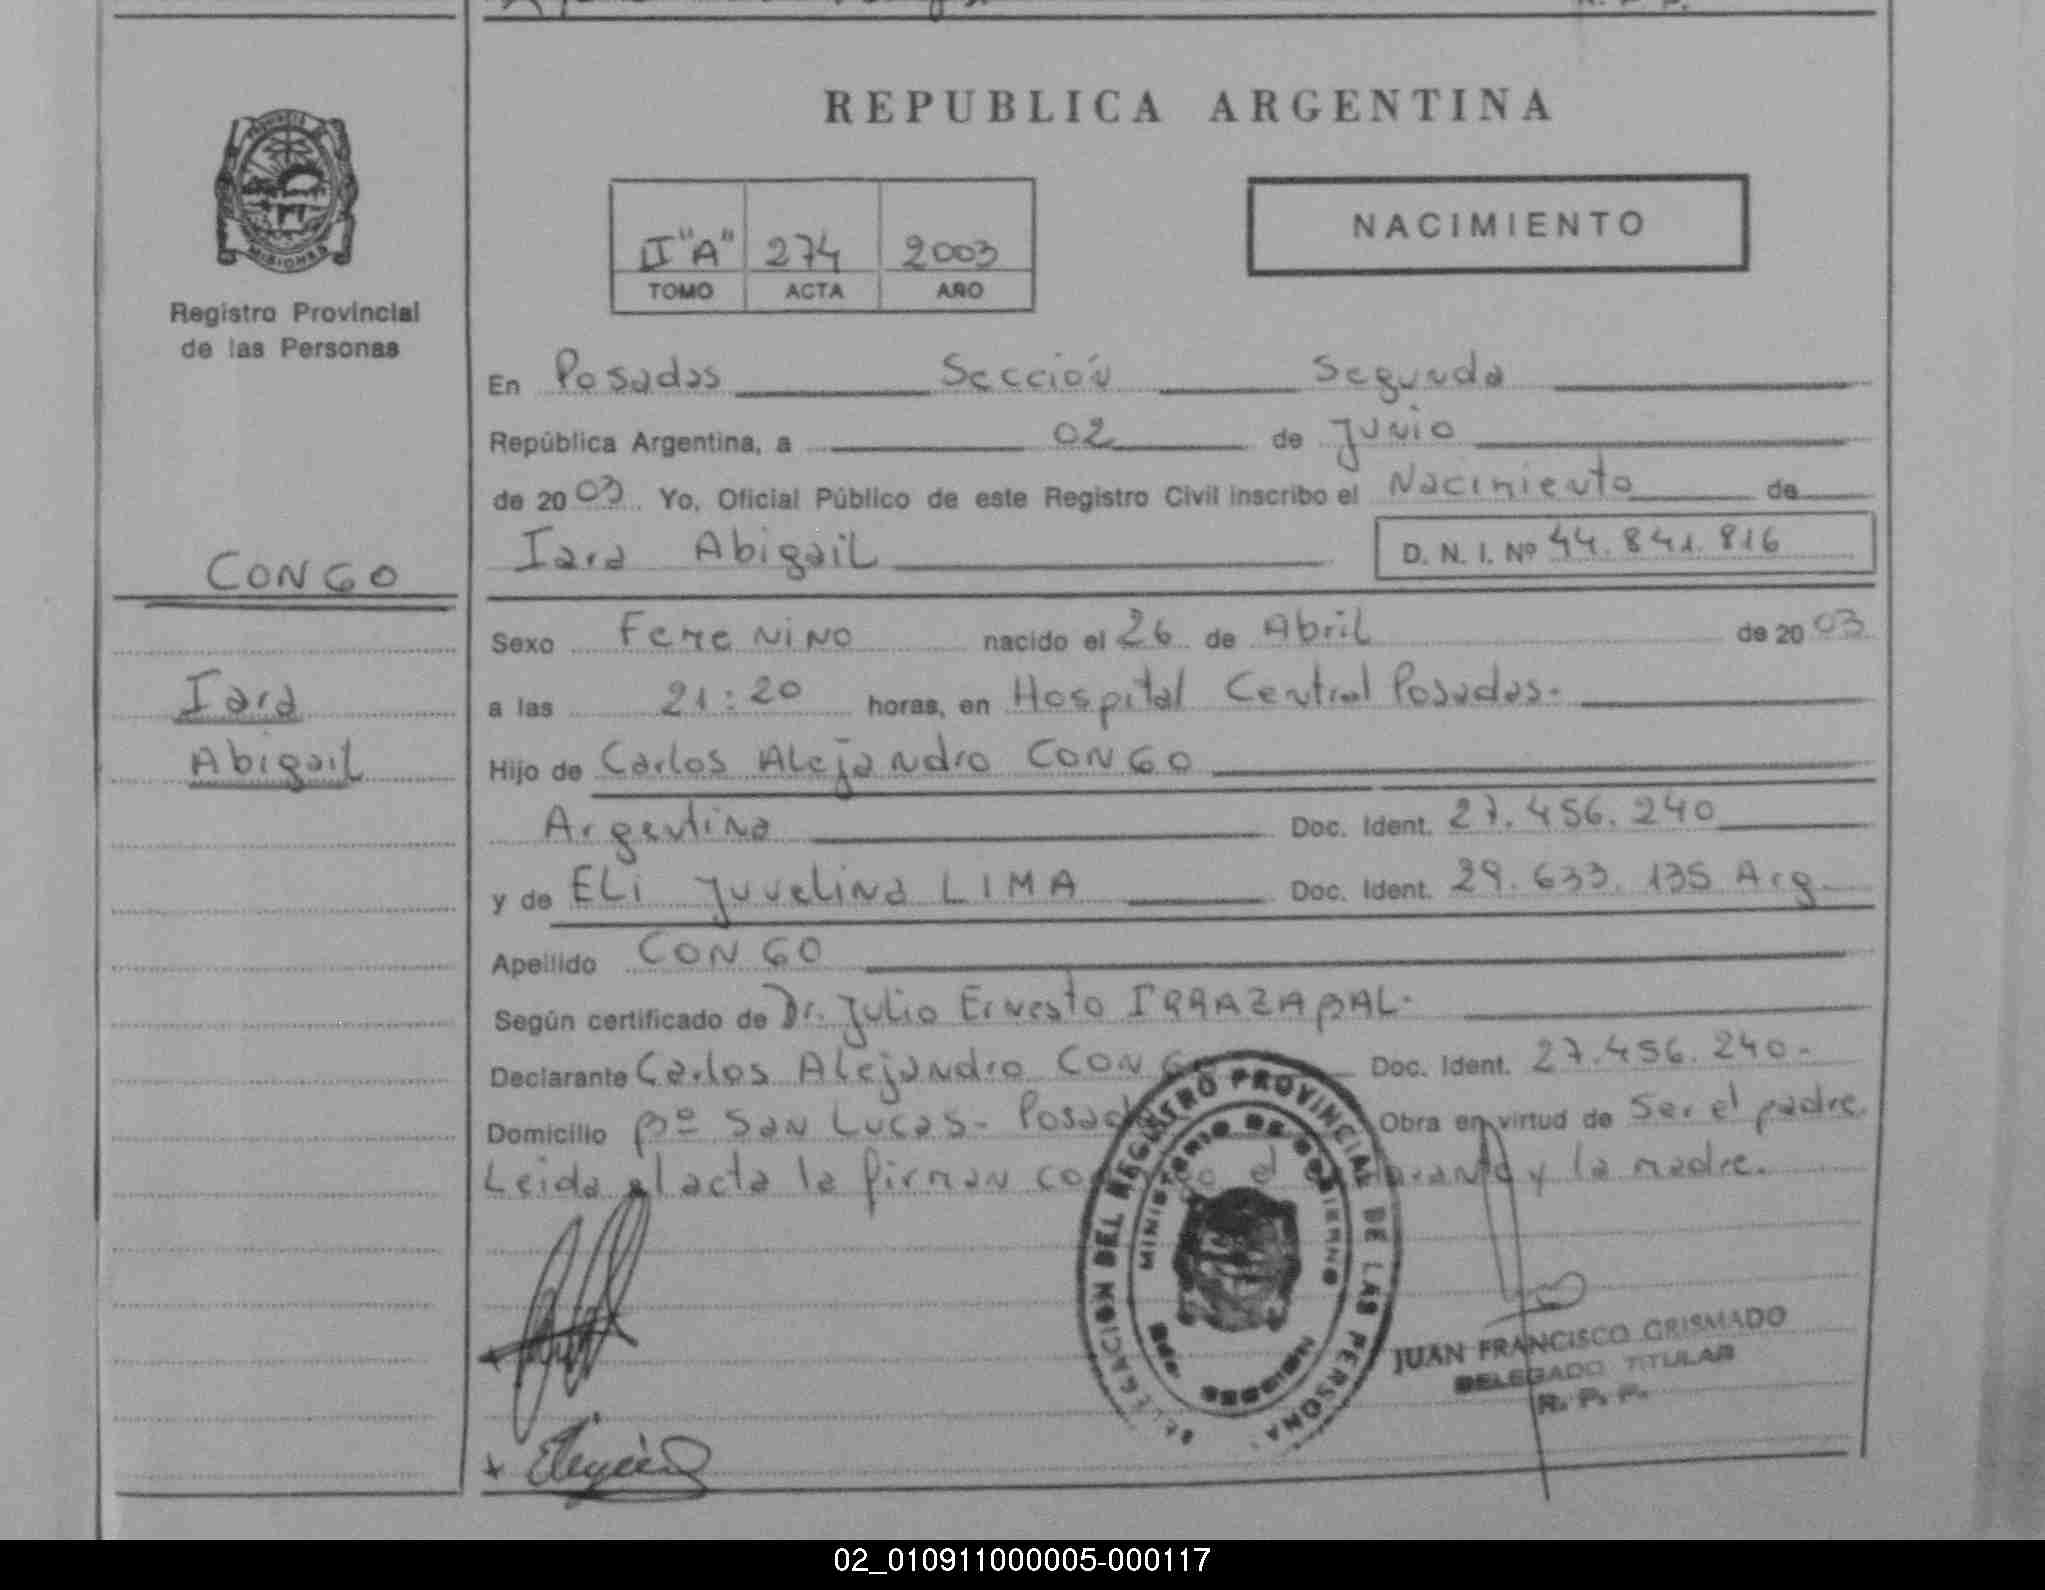 R. P. P.
REPUBLICA ARGENTINA
PROVINCIA D
MISIONES
Registro Provincial
de las Personas
II "A" 274 2003
TOMO ACTA AÑO
NACIMIENTO
En Posadas Sección Segunda
República Argentina, a 02 de Junio
de 2003. Yo, Oficial Público de este Registro Civil inscribo el Nacimiento de
Iara Abigail D. N. I. Nº 44.841.816
CONGO
Iara
Abigail
Sexo Femenino nacido el 26 de Abril de 2003
a las 21:20 horas, en Hospital Central Posadas.
Hijo de Carlos Alejandro CONGO
Argentina Doc. Ident. 27.456.240
y de ELi Juvelina LIMA Doc. Ident. 29.633.135 Arg.
Apellido CONGO
Según certificado de Dr. Julio Ernesto IRRAZABAL.
Declarante Carlos Alejandro CONGO Doc. Ident. 27.456.240.-
Domicilio Bº San Lucas - Posadas Obra en virtud de Ser el padre.
Leida el acta la firman conmigo el declarante y la madre.
DELEGACION DEL REGISTRO PROVINCIAL DE LAS PERSONA
MINISTERIO DE GOBIERNO
MISIONES
JUAN FRANCISCO GRISMADO
DELEGADO TITULAR
R. P. P.
02_010911000005-000117